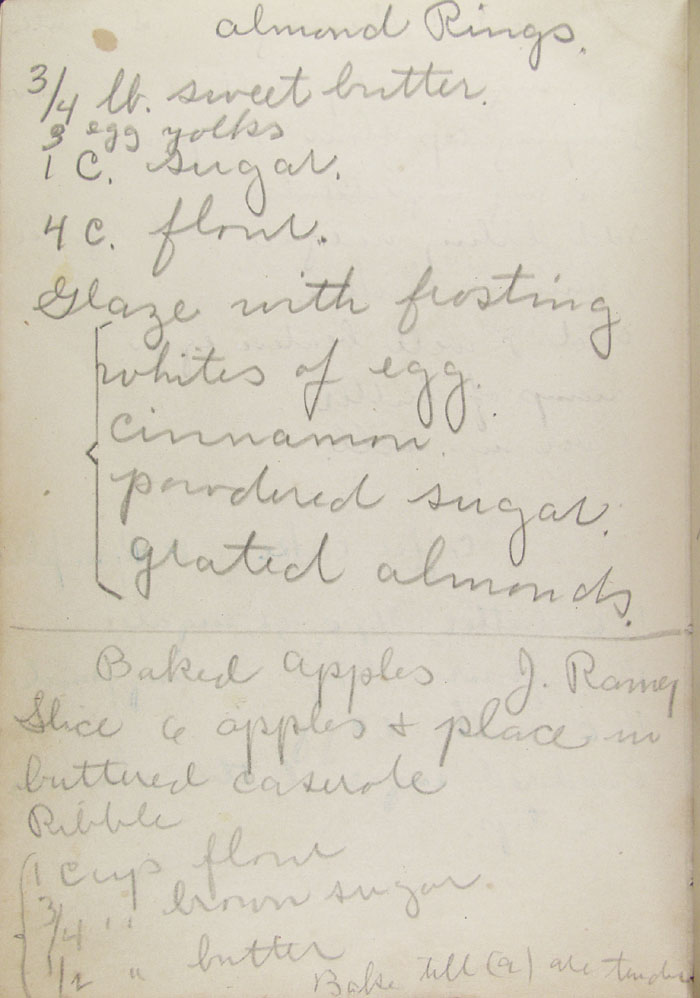 almond Rings.
3/4 lb. sweet butter.
3 egg yolks
1 C. sugar.
4 C. flour.
Glaze with frosting
whites of egg.
cinnamon.
powdered sugar.
grated almonds.
Baked apples J. Ramey
Slice 6 apples + place in
buttered caserole
Ribble
1 cup flour
3/4 " brown sugar.
1/2 " butter
Bake till (a) are tender